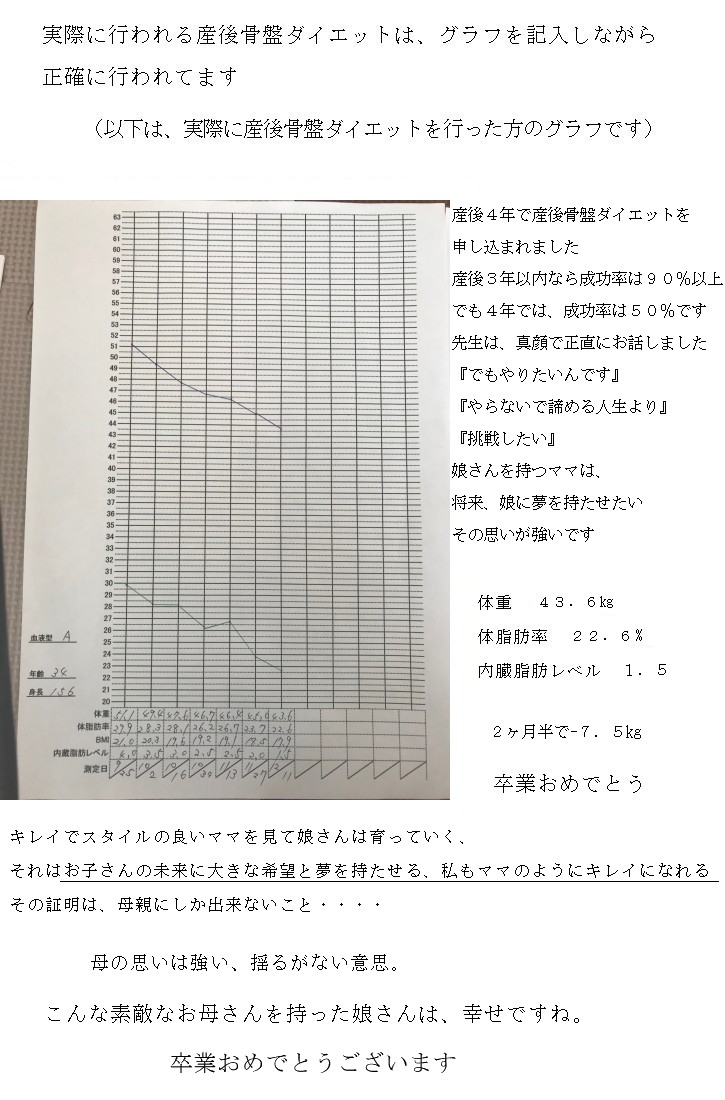 実際に行われる産後骨盤ダイエットは、グラフを記入しながら
正確に行われてます
（以下は、実際に産後骨盤ダイエットを行った方のグラフです）
63
62
61
60
59
58
57
56
55
54
53
52
51
50
49
48
47
46
45
44
43
42
41
40
39
38
37
36
35
34
33
32
31
30
29
28
27
26
25
24
23
22
21
20
血液型 A
年齢 34
身長 156
体重 51.1 49.4 47.6 46.7 46.4 45.0 43.6
体脂肪率 29.9 28.3 28.1 26.2 26.7 23.7 22.6
BMI 21.0 20.3 19.6 19.2 19.1 18.5 17.9
内蔵脂肪レベル 4.0 3.5 3.0 2.5 2.5 2.0 1.5
測定日 9/25 10/2 10/16 10/30 11/13 11/27 12/11
産後４年で産後骨盤ダイエットを
申し込まれました
産後３年以内なら成功率は９０％以上
でも４年では、成功率は５０％です
先生は、真顔で正直にお話しました
『でもやりたいんです』
『やらないで諦める人生より』
『挑戦したい』
娘さんを持つママは、
将来、娘に夢を持たせたい
その思いが強いです
体重　４３．６㎏
体脂肪率　２２．６％
内臓脂肪レベル　１．５
２ヶ月半で-７．５㎏
卒業おめでとう
キレイでスタイルの良いママを見て娘さんは育っていく、
それはお子さんの未来に大きな希望と夢を持たせる、私もママのようにキレイになれる
その証明は、母親にしか出来ないこと・・・・
母の思いは強い、揺るがない意思。
こんな素敵なお母さんを持った娘さんは、幸せですね。
卒業おめでとうございます